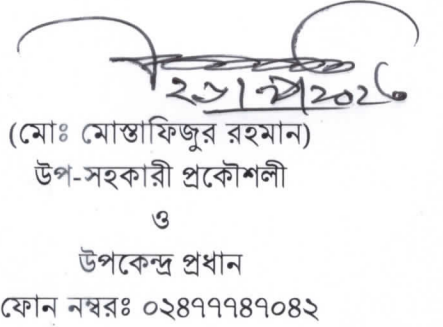 (মোঃ মোস্তাফিজুর রহমান)
উপ-সহকারী প্রকৌশলী
ও
উপকেন্দ্র প্রধান
ফোন নম্বরঃ ০২৪৭৭৭৪৭০৪২